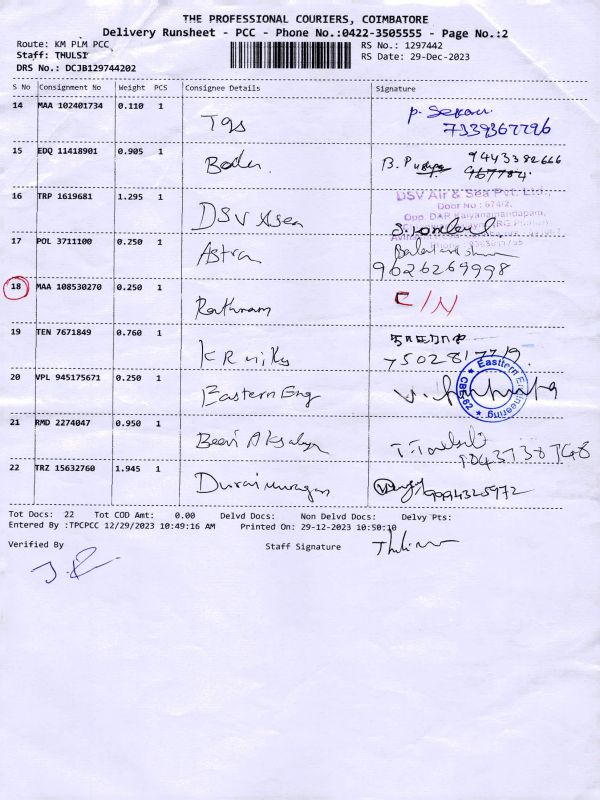 THE PROFESSIONAL COURIERS, COIMBATORE
Delivery Runsheet - PCC - Phone No.:0422-3505555 - Page No.:2
Route: KM PLM PCC
RS No.: 1297442
Staff: THULSI
RS Date: 29-Dec-2023
DRS No.: DCJB129744202
S No Consignment No Weight PCS Consignee Details Signature
14 MAA 102401734 0.110 1 Tgs P. Sekar
7339367796
15 EDQ 11418901 0.905 1 B. Pushpa 9443382666
967784
16 TRP 1619681 1.295 1 DSV Asea
DSV Air & Sea Pvt. Ltd.,
Door No : 674/2,
Opp. DAR Kalyanamandapam,
17 POL 3711100 0.250 1 Astra
9626269998
18 MAA 108530270 0.250 1 Rathnam C/N
19 TEN 7671849 0.760 1 K R
7502817719
20 VPL 945175671 0.250 1 Eastern Eng
Eastern Engineering
21 RMD 2274047 0.950 1
9043738748
22 TRZ 15632760 1.945 1 Duraimurugan 9994325972
Tot Docs: 22 Tot COD Amt: 0.00 Delvd Docs: Non Delvd Docs: Delvy Pts:
Entered By :TPCPCC 12/29/2023 10:49:16 AM Printed On: 29-12-2023 10:50:10
Verified By Staff Signature